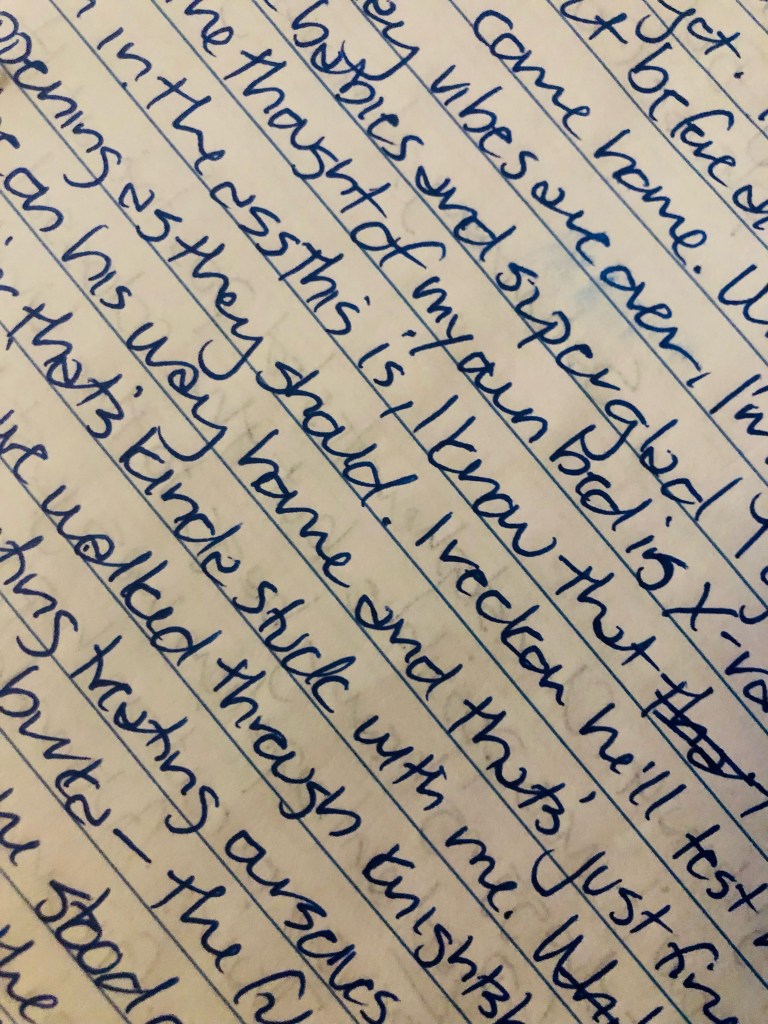 yet.
it before
come home.
vibes are over, I'm
babies and super glad
the thought of my own bed is X-ra
in the ass this is, I know that that
opening as they should. I reckon he'll test
on his way home and that's just fine
that's kinda stuck with me.
we walked through Knightsb
ting treating ourselves
the
stood
the